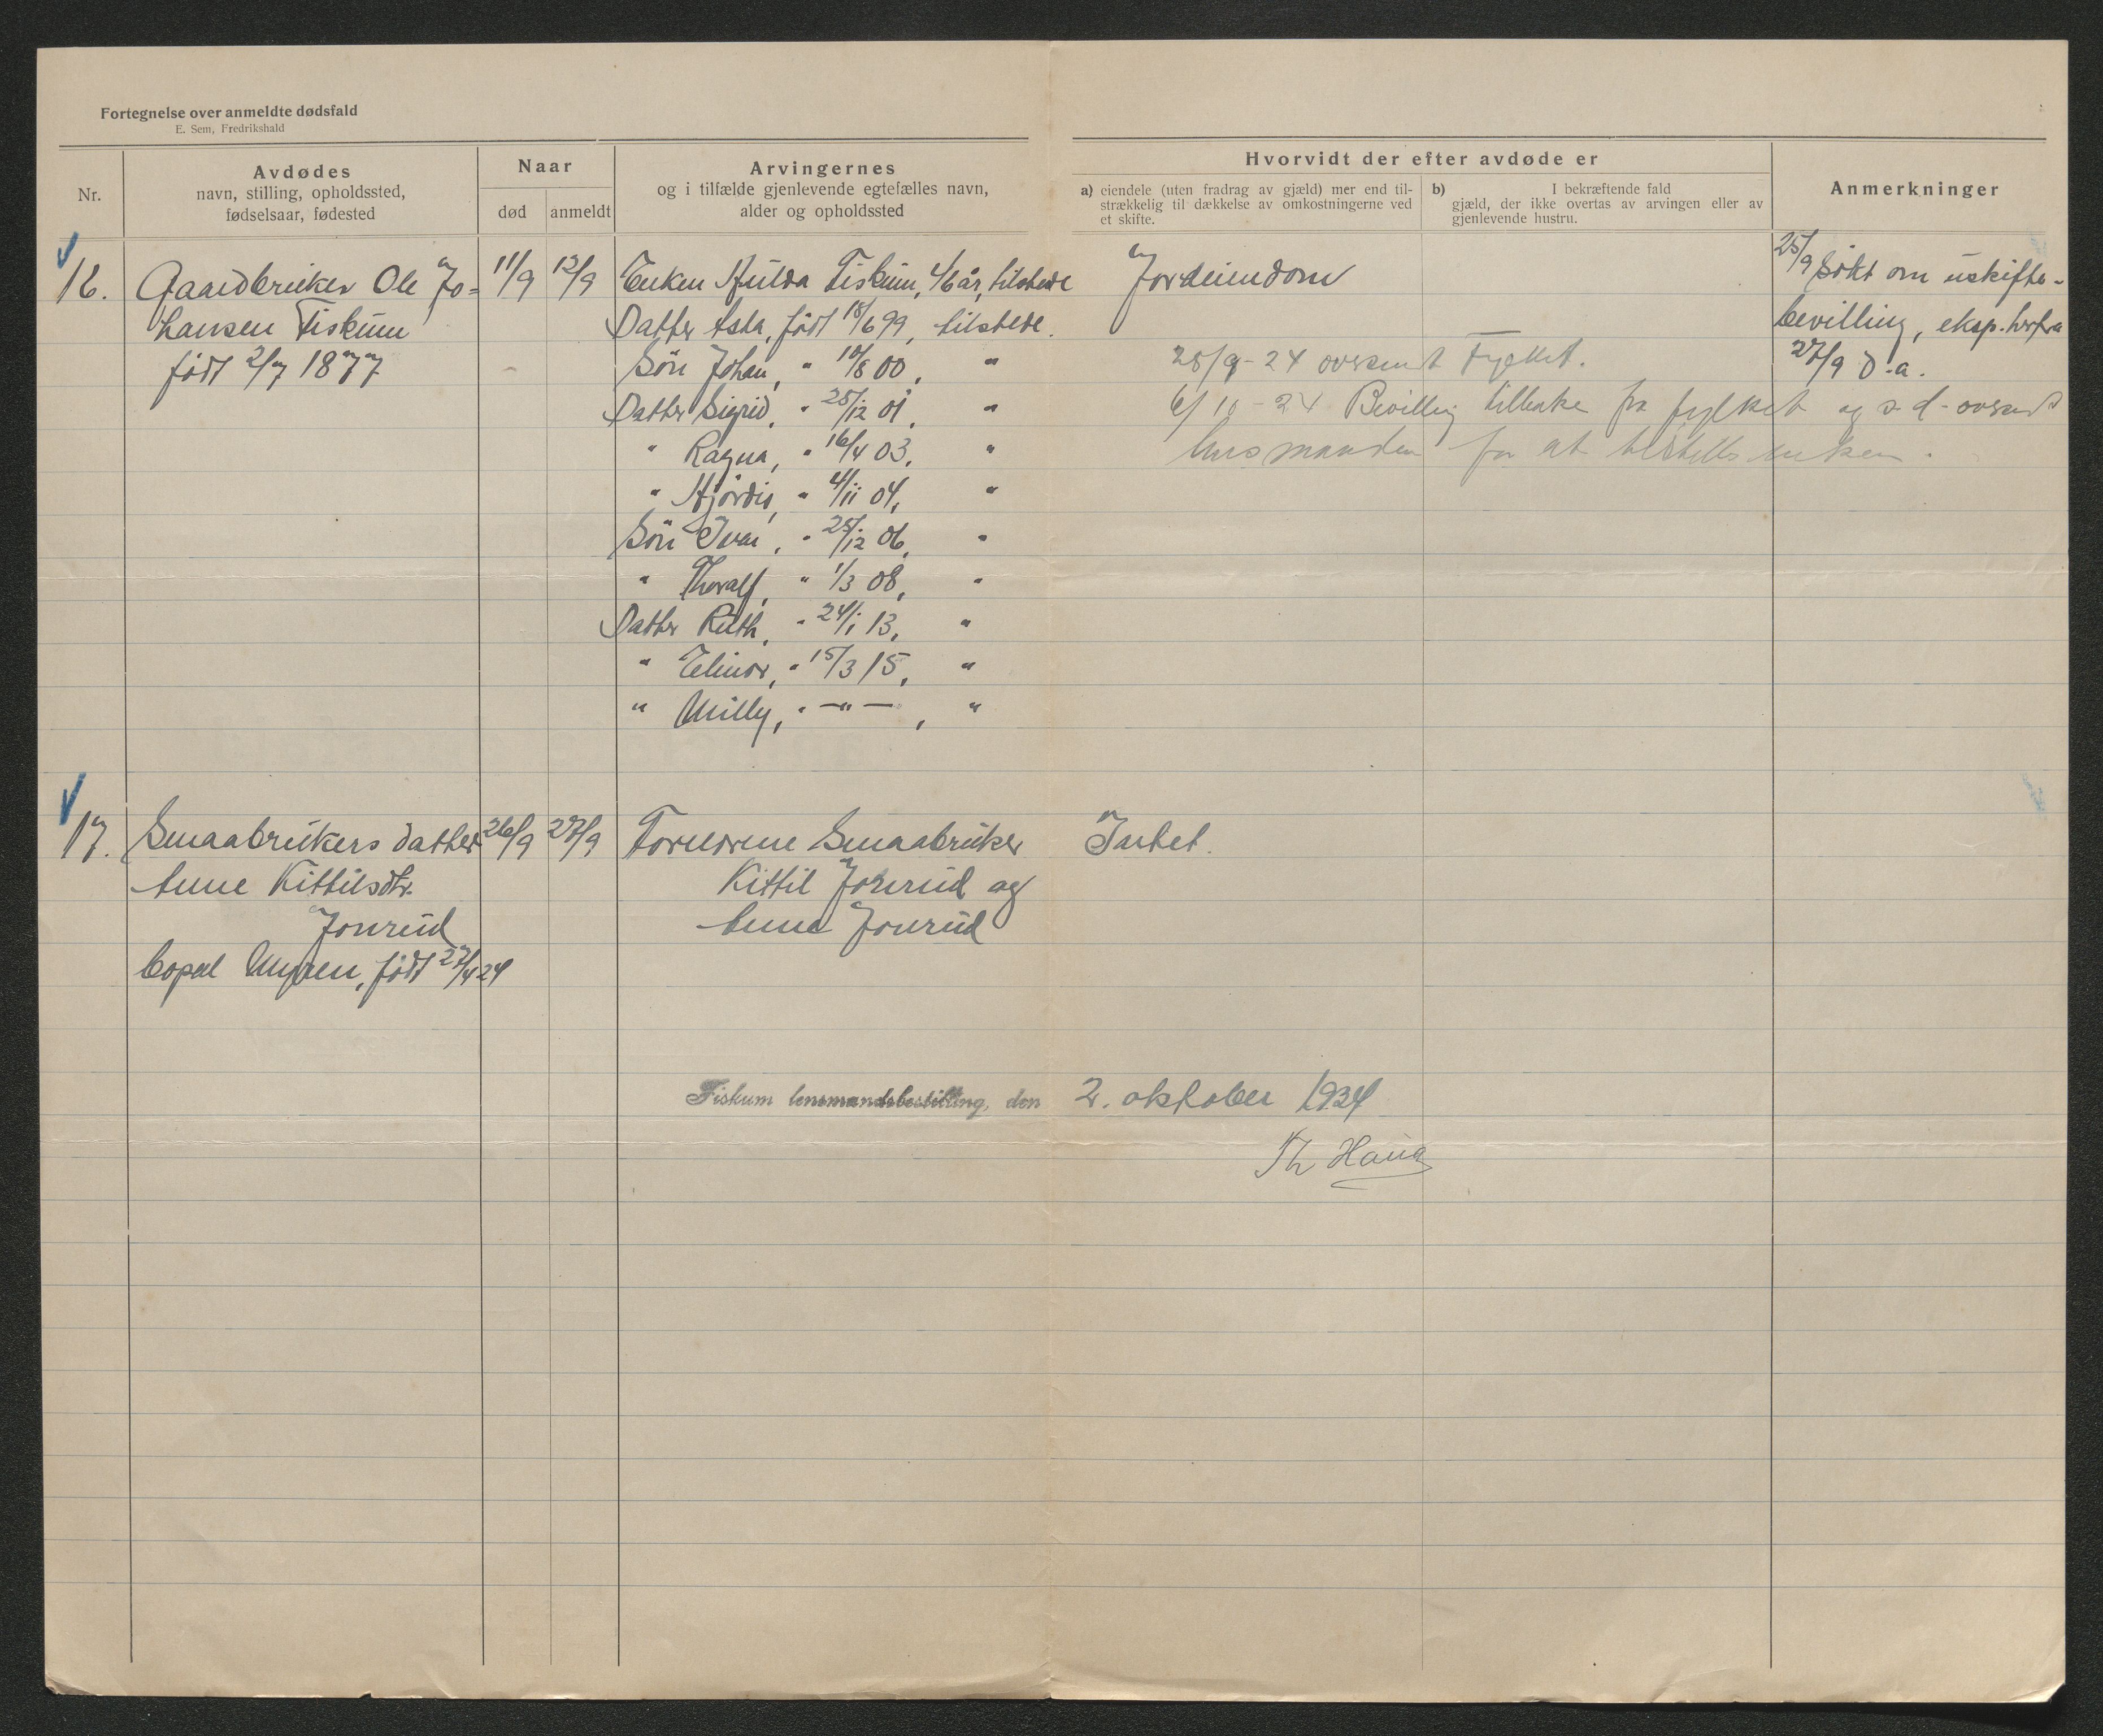 Fortegnelse over anmeldte dødsfald
E. Sem, Fredrikshald
Nr.
Avdødes
navn, stilling, opholdssted,
fødselsaar, fødested
Naar
død
anmeldt
Arvingernes
og i tilfælde gjenlevende egtefælles navn,
alder og opholdssted
Hvorvidt der efter avdøde er
a) eiendele (uten fradrag av gjæld) mer end til-
strækkelig til dækkelse av omkostningerne ved
et skifte.
b) I bekræftende fald
gjæld, der ikke overtas av arvingen eller av
gjenlevende hustru.
Anmerkninger
16.
Gaardbruker Ole Jo=
hansen Fiskum
født 2/7 1877
11/9
12/9
Enken Hulda Fiskum, 46 år, tilstede
Datter Asta, født 18/6 99, tilstede.
Søn Johan, " 10/8 00, "
Datter Sigrid, " 25/12 01, "
" Ragna, " 16/4 03, "
" Hjørdis, " 4/11 04, "
Søn Ivar, " 25/12 06, "
" Thoralf, " 1/3 08, "
Datter Ruth, " 24/1 13, "
" Elinor, " 15/3 15, "
" Milly, " —"— , "
Jordeiendom
28/9-24 oversendt Fylket.
6/10-24 Bevilling tilbake fra fylket og s d. oversendt
lensmanden for at tilstilles enken.
25/9 søkt om uskifte-
bevilling, eksp. herfra
27/9 d.a.
17.
Smaabrukers datter
Anne Kittilsdtr.
Jonrud
Myren, født 27/4 24
26/9
27/9
Forældrene Smaabruker
Kittil Jonrud og
Anna Jonrud
Intet.
Fiskum lensmandsbestilling, den 2. oktober 1924
Th Haug